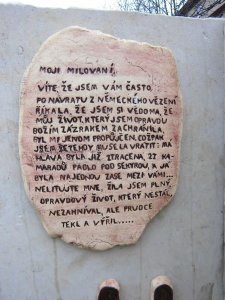 MOJI MILOVANÍ,
VÍTE, ŽE JSEM VÁM ČASTO,
PO NÁVRATU Z NĚMECKÉHO VĚZENÍ
ŘÍKALA, ŽE JSEM SI VĚDOMA, ŽE
MŮJ ŽIVOT, KTERÝ JSEM OPRAVDU
BOŽÍM ZÁZRAKEM ZACHRÁNILA,
BYL MI JENOM PROPŮJČEN. COŽPAK
JSEM ŽE TEHDY MUSELA VRÁTIT: MÁ
HLAVA BYLA JIŽ ZTRACENA, 22 KA-
MARÁDŮ PADLO POD SEKYROU, A JÁ
BYLA NAJEDNOU ZASE MEZI VÁMI...
NELITUJTE MNE, ŽILA JSEM PLNÝ,
OPRAVDOVÝ ŽIVOT, KTERÝ NESTÁL,
NEZAHNÍVAL, ALE PRUDCE
TEKL A VÍŘIL.....